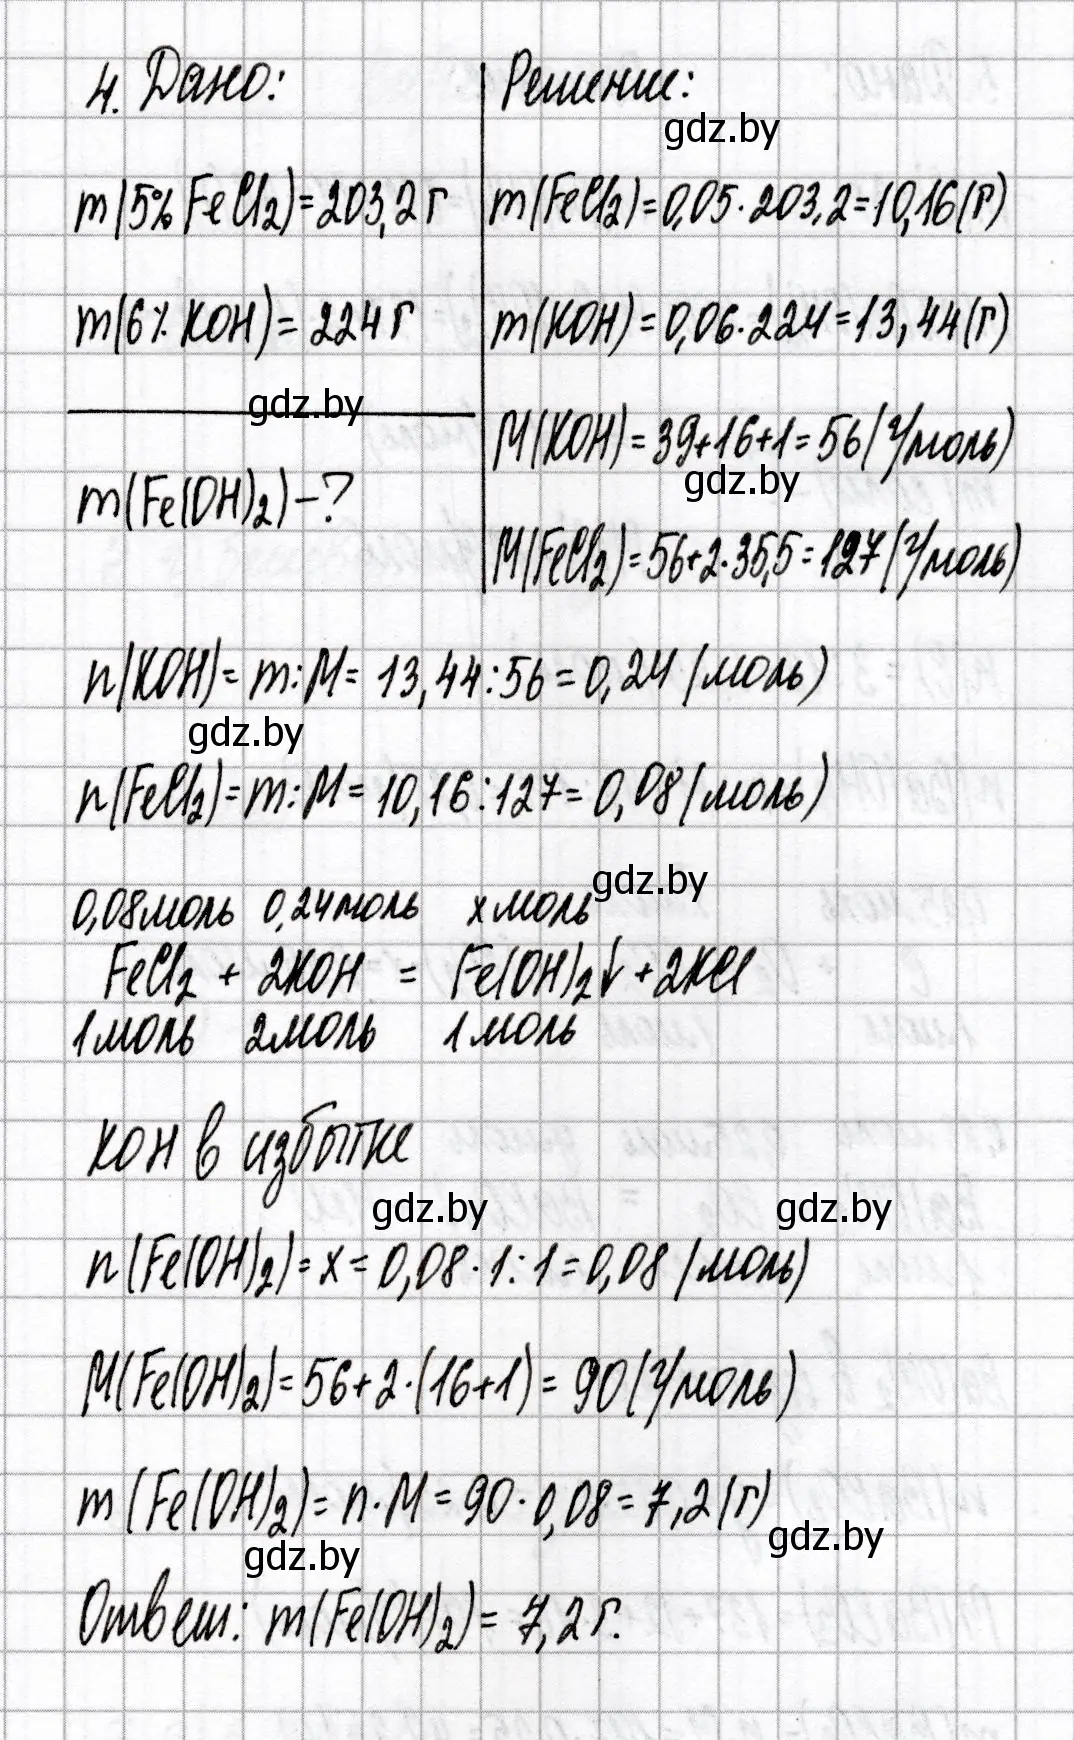 4. Дано:
Решение:
gdz.by
m(5% FeCl₂)=203,2 г
m(FeCl₂)=0,05·203,2=10,16(г)
m(6% KOH)=224 г
m(KOH)=0,06·224=13,44(г)
gdz.by
M(KOH)=39+16+1=56(г/моль)
gdz.by
m(Fe(OH)₂)-?
M(FeCl₂)=56+2·35,5=127(г/моль)
n(KOH)=m:M=13,44:56=0,24(моль)
gdz.by
n(FeCl₂)=m:M=10,16:127=0,08(моль)
gdz.by
0,08моль 0,24моль x моль
FeCl₂ + 2KOH = Fe(OH)₂↓ + 2KCl
1моль 2моль 1моль
KOH в избытке
gdz.by gdz.by
n(Fe(OH)₂)=x=0,08·1:1=0,08(моль)
M(Fe(OH)₂)=56+2·(16+1)=90(г/моль)
m(Fe(OH)₂)=n·M=90·0,08=7,2(г)
gdz.by
gdz.by
Ответ: m(Fe(OH)₂)=7,2г.